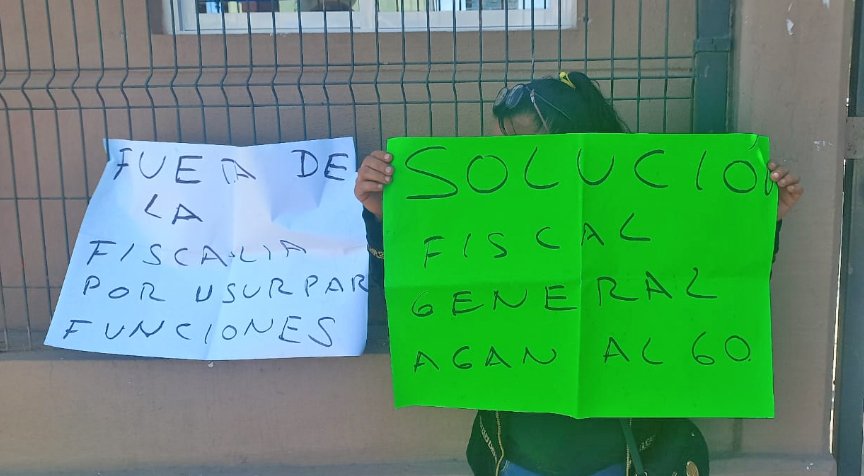 FUERA DE
LA
FISCALIA
POR USURPAR
FUNCIONES
SOLUCIÓN
FISCAL
GENERAL
AGAN ALGO